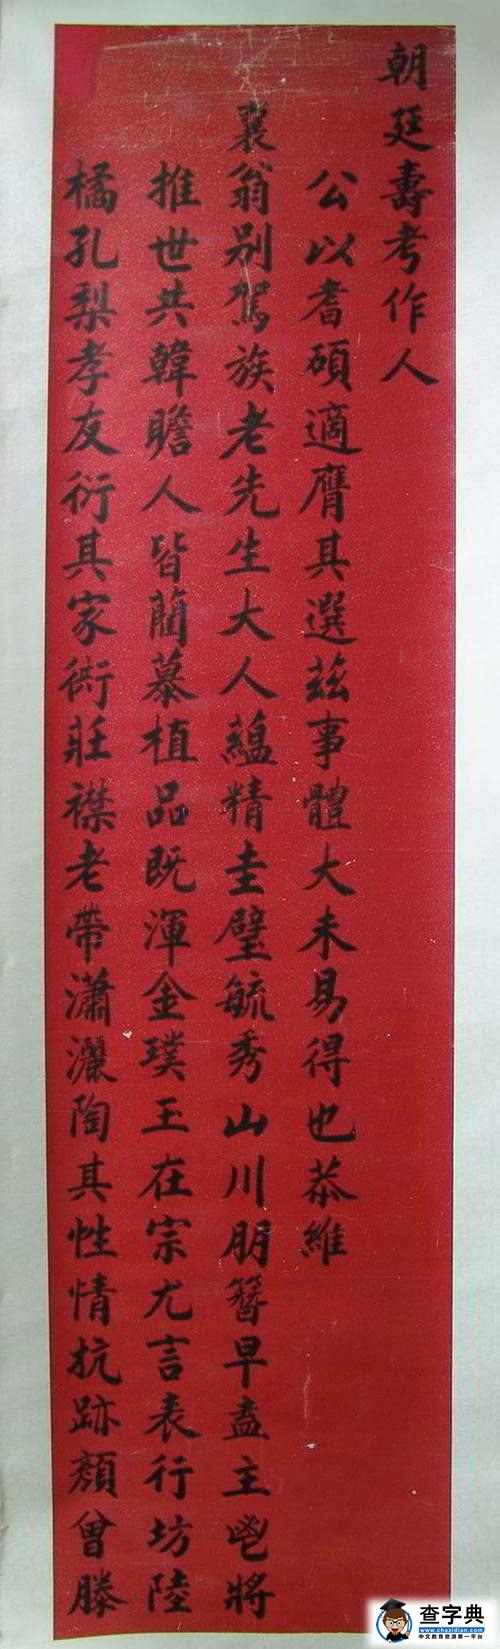 朝廷壽考作人
公以耆碩適膺其選茲事體大未易得也恭維
襄翁別駕族老先生大人蘊精圭璧毓秀山川朋簪早盍主鬯將
推世共韓瞻人皆藺慕植品既渾金璞玉在宗尤言表行坊陸
橘孔梨孝友衍其家衖莊襟老帶瀟灑陶其性情抗跡顏曾滕
查字典
www.chazidian.com
中文教育资源第一平台